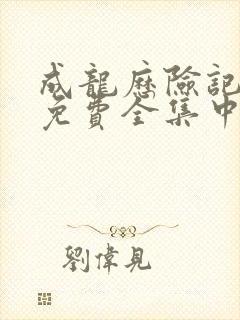 成龍歷險記
免費全集中
劉偉見